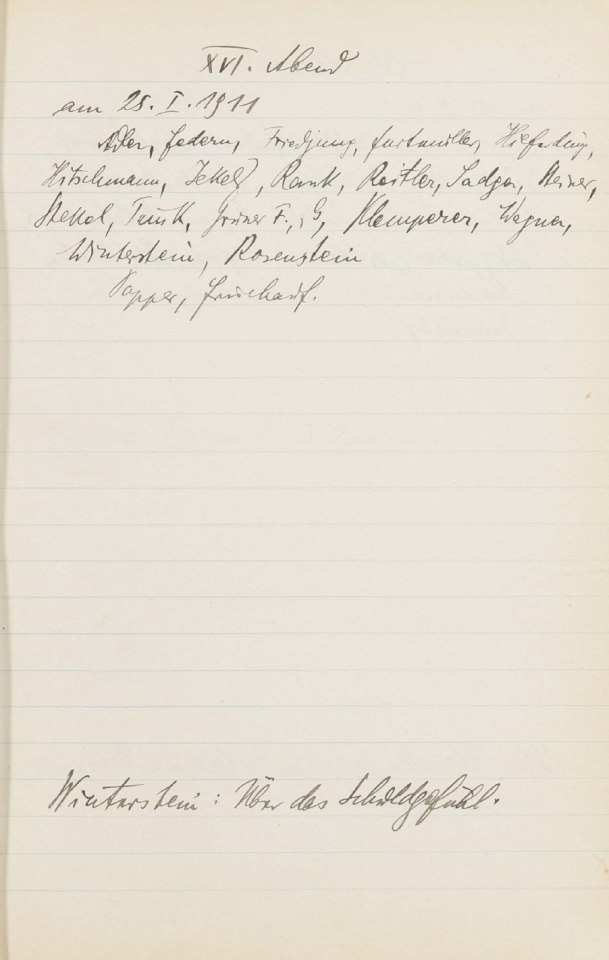 XVI. Abend
am 25. I. 1911
Adler, Federn, Friedjung, Furtmüller, Hilferding,
Hitschmann, Jekels, Rank, Reitler, Sadger, Steiner,
Stekel, Tausk, Grüner F., G, Klemperer, Wagner,
Winterstein, Rosenstein
Popper, Frischauf.
Winterstein: Über das Schuldgefühl.